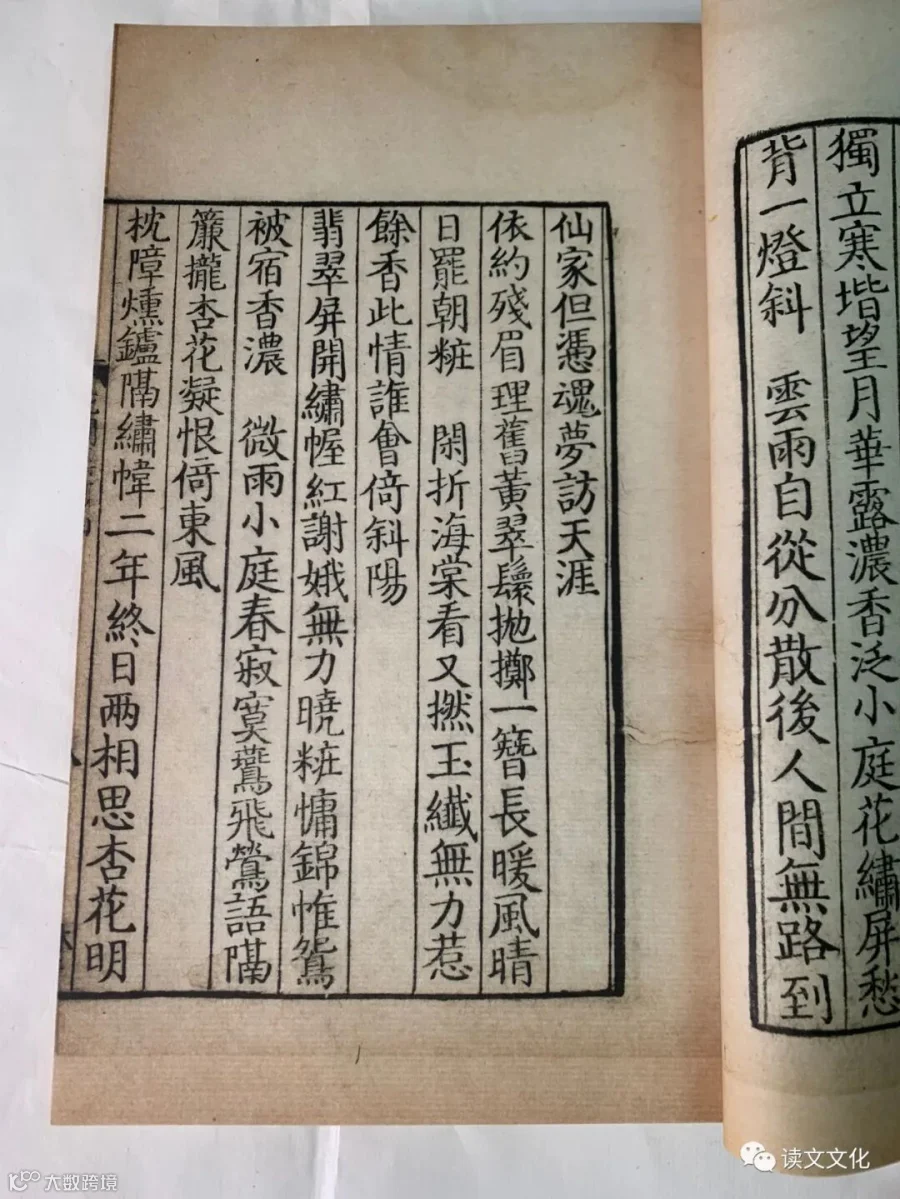 獨立寒堦望月華露濃香泛小庭花繡屏愁
背一燈斜　雲雨自從分散後人間無路到
仙家但憑魂夢訪天涯
依約殘眉理舊黃翠鬟抛擲一簪長暖風晴
日罷朝粧　閑折海棠看又撚玉纖無力惹
餘香此情誰會倚斜陽
翡翠屏開繡幄紅謝娥無力曉粧慵錦帷鴛
被宿香濃　微雨小庭春寂寞鷰飛鶯語隔
簾攏杏花凝恨倚東風
枕障燻鑪隔繡幃二年終日兩相思杏花明
读文文化
大数跨境